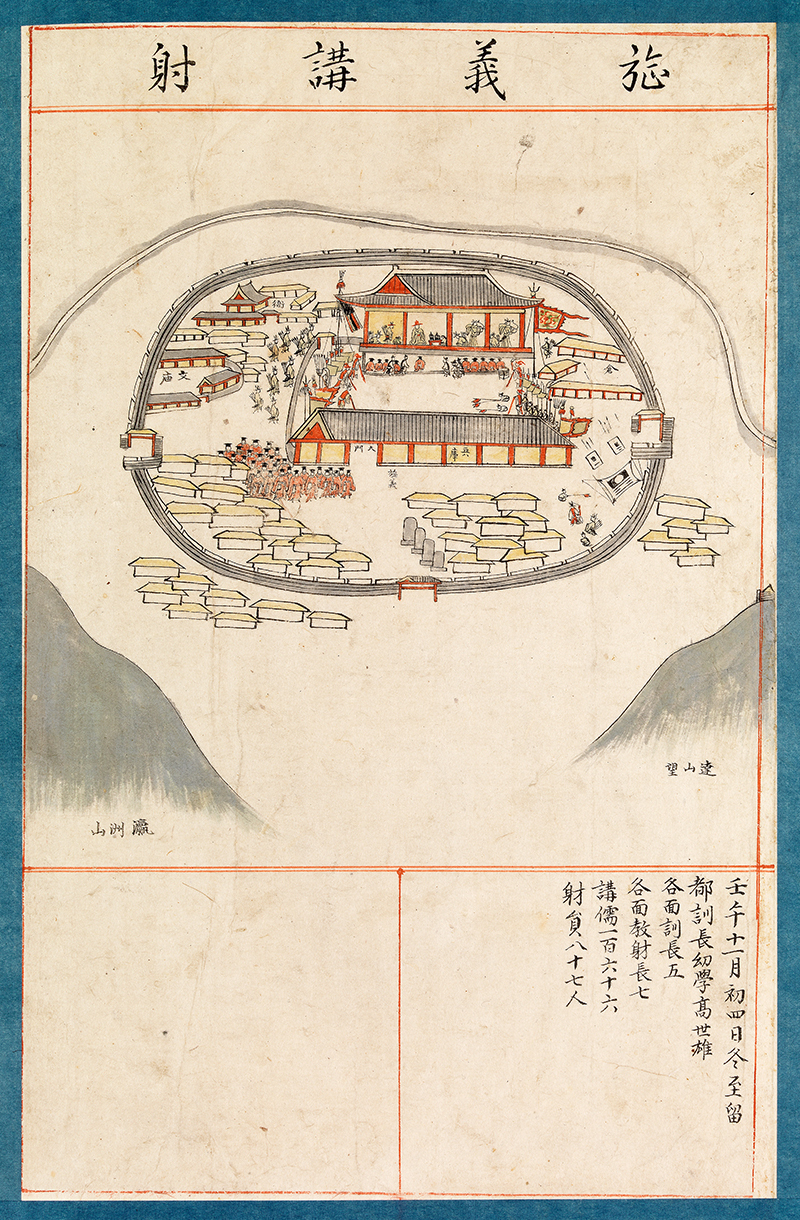 旌義講射
衙
文庙
倉
兵庫
大門
旌義
達山望
瀛洲山
壬午十一月初四日冬至留
都訓長幼學高世雄
各面訓長五
各面教射長七
講儒一百六十六
射員八十七人